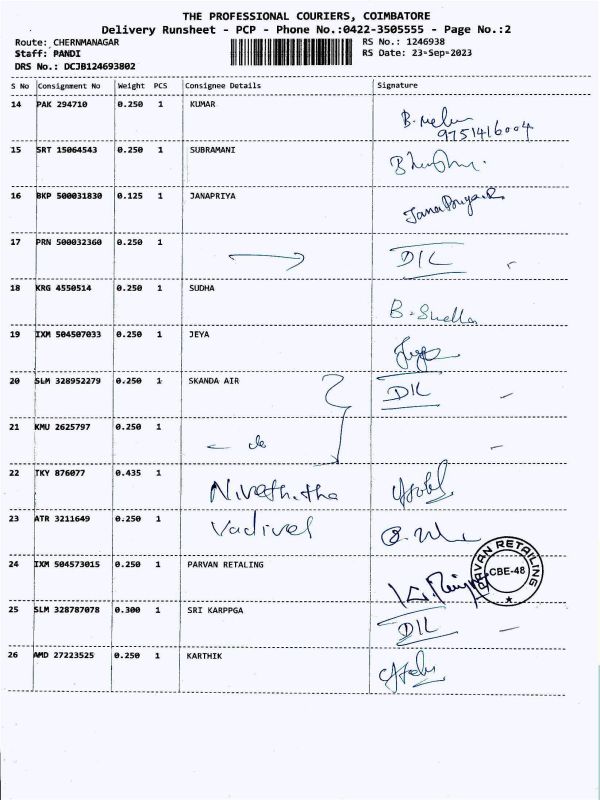 THE PROFESSIONAL COURIERS, COIMBATORE
Delivery Runsheet - PCP - Phone No.:0422-3505555 - Page No.:2
Route: CHERNMANAGAR RS No.: 1246938
Staff: PANDI RS Date: 23-Sep-2023
DRS No.: DCJB124693802
S No Consignment No Weight PCS Consignee Details Signature
14 PAK 294710 0.250 1 KUMAR
9751416004
15 SRT 15064543 0.250 1 SUBRAMANI
16 BKP 500031830 0.125 1 JANAPRIYA
JanaPriya
17 PRN 500032360 0.250 1
D/L
18 KRG 4550514 0.250 1 SUDHA
19 IXM 504507033 0.250 1 JEYA
20 SLM 328952279 0.250 1 SKANDA AIR D/L
21 KMU 2625797 0.250 1
22 TKY 876077 0.435 1
Nivethitha
23 ATR 3211649 0.250 1 Vadivel
24 IXM 504573015 0.250 1 PARVAN RETALING
PARVAN RETAILING
CBE-48
25 SLM 328787078 0.300 1 SRI KARPPGA
D/L
26 AMD 27223525 0.250 1 KARTHIK